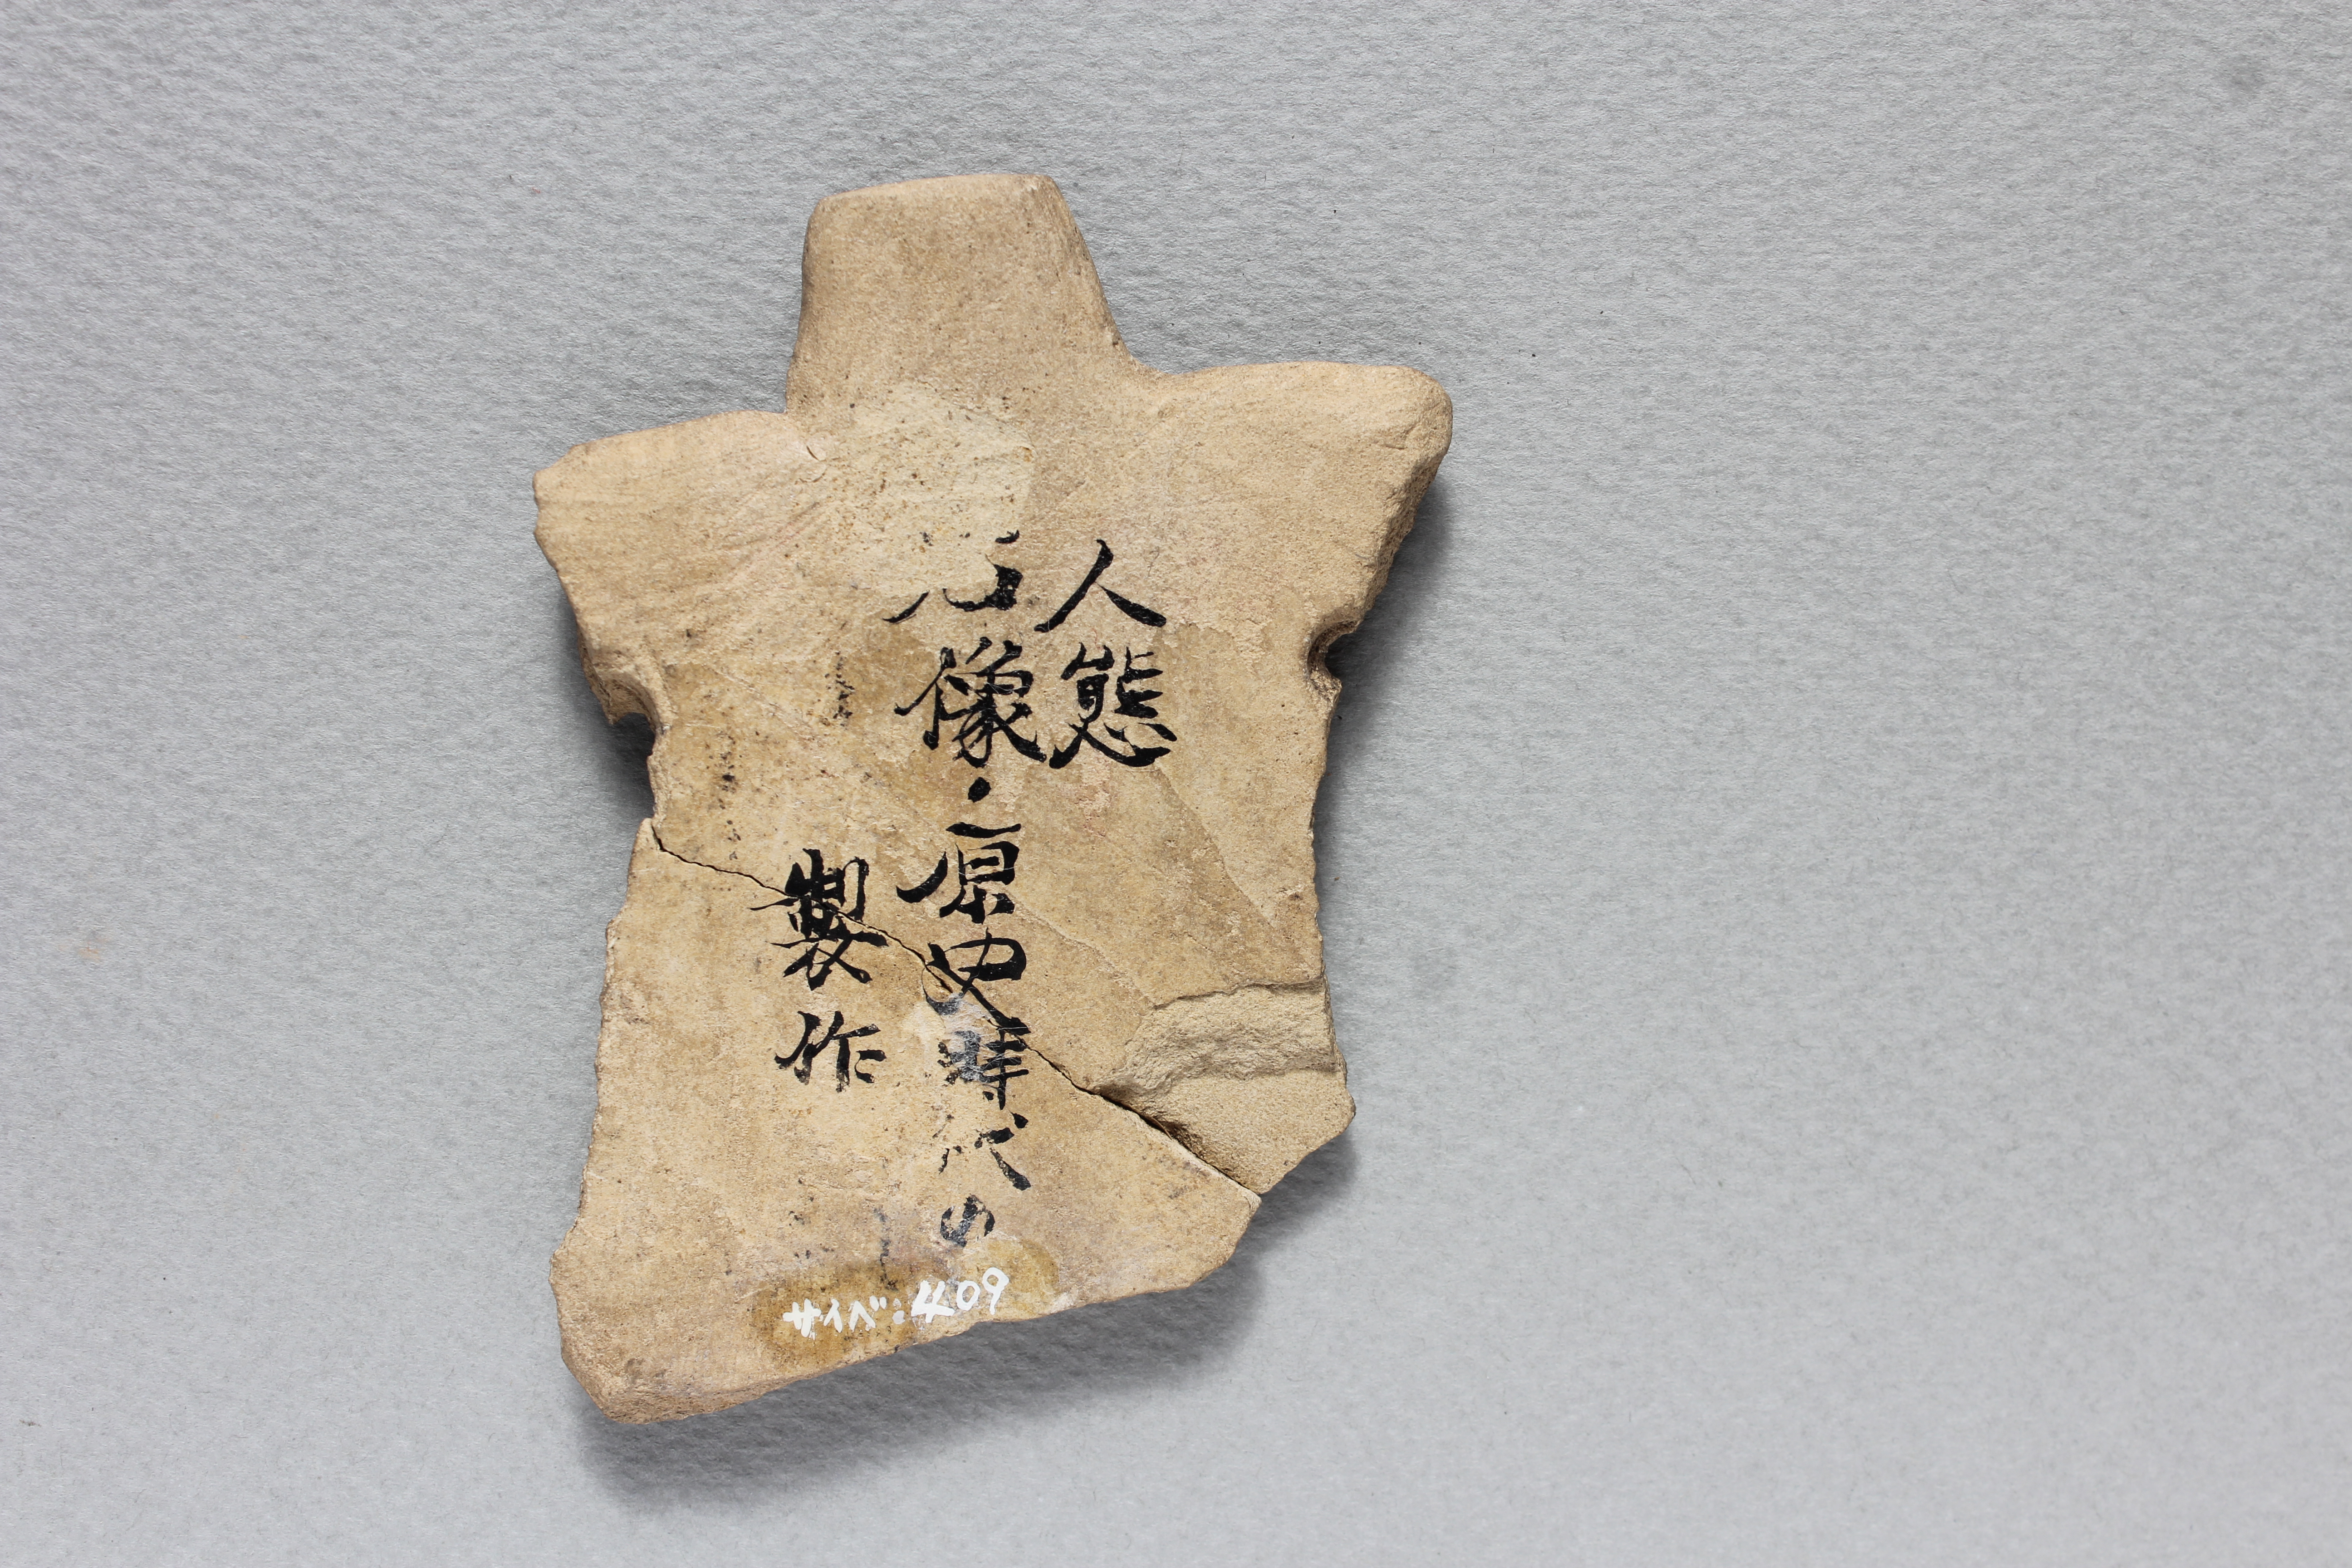 人態
石像・原史時代の
製作
サイベ:409